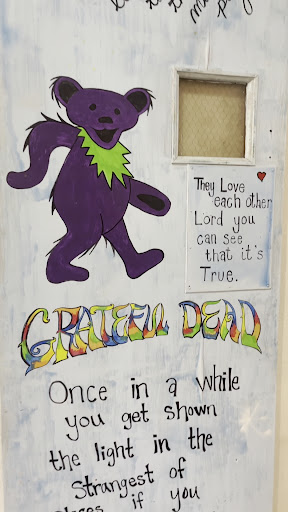 They Love
each other
Lord you
can see
that it's
True.
GRATEFUL DEAD
Once in a while
you get shown
the light in the
Strangest of
places if you